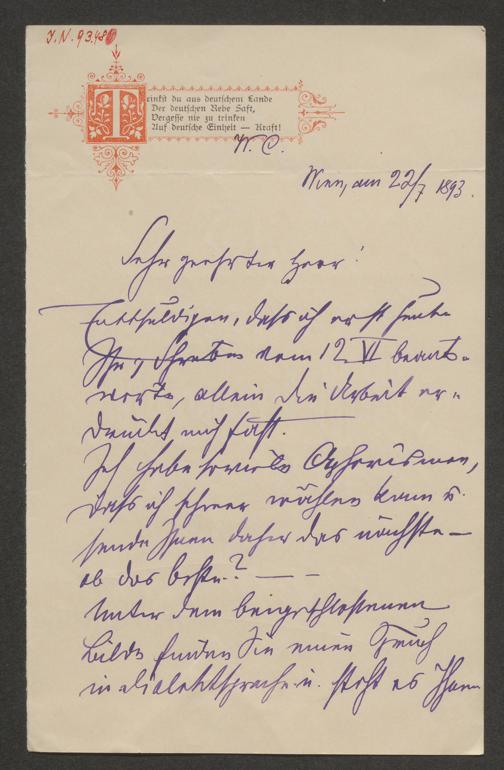 J.N. 93.480
Trinkst du aus deutschem Lande
Der deutschen Rebe Saft,
Vergesse nie zu trinken
Auf deutsche Einheit — Kraft!
W. C.
Wien, am 22/7 1893.
Sehr geehrter Herr!
Entschuldigen, dass ich erst heute
Ihr Schreiben vom 12. VI beant-
worte, allein die Arbeit er-
drückt mich fast.
Ich habe soviele Aphorismen,
dass ich schwer wählen kann u.
sende Ihnen daher das nächste —
ob das beste? — —
Unter dem beigeschlossenen
Bilde finden Sie einen Spruch
in Dialektsprache u. steht es Ihnen